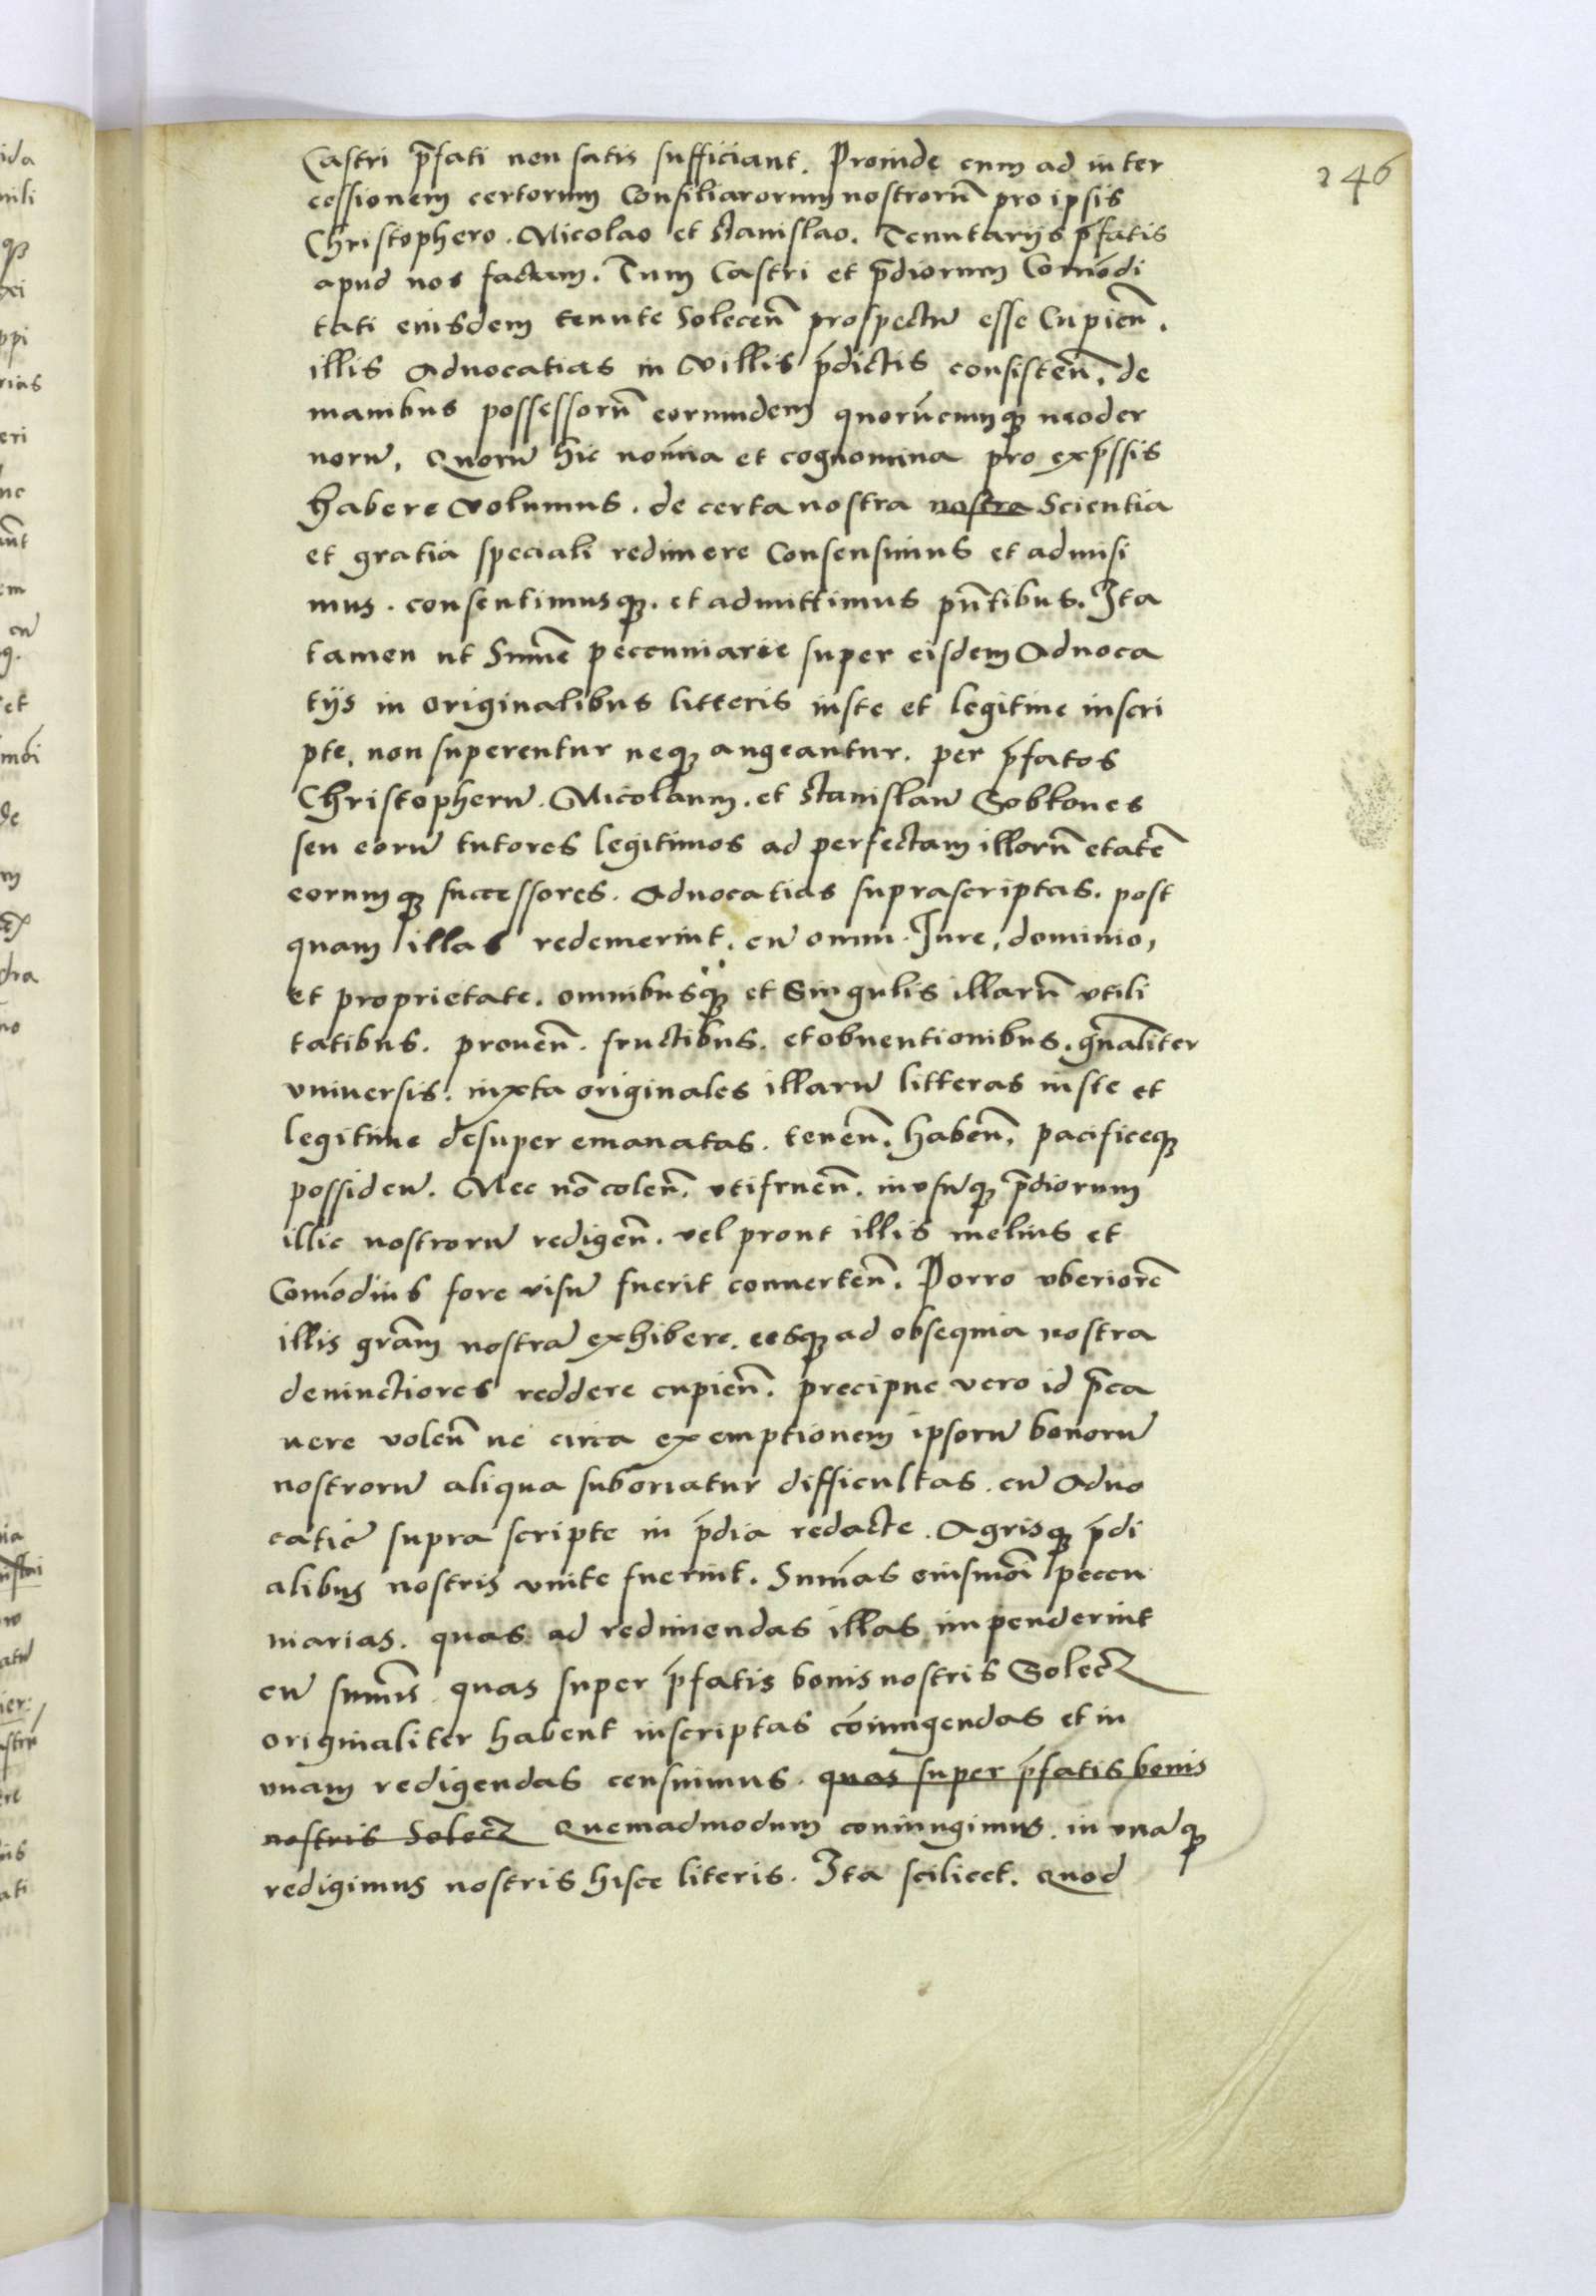 246
Castri p̄fati non satis sufficiant. Proinde cum ad inter
cessionem certorum Consiliarorum nostrorū pro ipsis
Christophero. Nicolao et Stanislao. Tenutarijs p̄fatis
apud nos factam. Tum Castri et p̄diorum Com̄odi
tati eiusdem tenute Solecen̄ prospectū esse Cupien̄.
illis Aduocatias in Villis p̄dictis consisten̄. de
manibus possessorū eorumdem quorūcumq; moder
norū. Quorū hic nom̄ia et cognomina pro exp̄ssis
habere Volumus. de certa nostra nostra Scientia
et gratia speciali redimere Consensimus et admisi
mus. consentimusq;. et admittimus pn̄tibus. Ita
tamen ut Sum̄e pecunniarie super eisdem Aduoca
tijs in originalibus litteris iuste et legitime inscri
pte, non superentur neq; augeantur. per p̄fatos
Christopherū. Nicolaum. et Stanislaū Sobkones
seu eorū tutores legitimos ad perfectam illorū etatē
eorumq; successores. Aduocatias suprascriptas. post
quam illas redemerint. cū omni. Iure, dominio,
et proprietate. omnibusq; et Singulis illarū vtili
tatibus. prouen̄. fructibus. et obuentionibus. gn̄aliter
vniuersis. iuxta originales illarū litteras iuste et
legitime desuper emanatas. tenen̄. haben̄. pacificeq;
possiden̄. Nec nō colen̄. vtifruen̄. in vsūq; p̄diorum
illic nostrorū redigen̄. vel prout illis melius et
Com̄odius fore visū fuerit conuerten̄. Porro vberiorē
illis gr̄am nostrā exhibere. eosq; ad obsequia nostra
deuinctiores reddere cupien̄. precipue vero id p̄ca
uere volen̄ ne circa exemptionem ipsorū bonorū
nostrorū aliqua suboriatur difficultas. cū Aduo
catie supra scripte in p̄dia redacte. Agrisq; p̄di
alibus nostris vnite fuerint. Sum̄as eiusmōi pecun
niarias. quas ad redimendas illas impenderint
cū sum̄is. quas super p̄fatis bonis nostris Solecz
originaliter habent inscriptas cōiungendas et in
vnam redigendas censuimus. quas super p̄fatis bonis
nostris Solecz Quemadmodum coniungimus. in vnāq;
redigimus nostris hisce literis. Ita scilicet. Quod